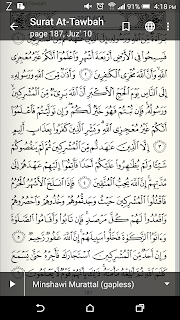 4:18 PM
Surat At-Tawbah
page 187, Juz' 10
فَسِيحُوا۟ فِى ٱلْأَرْضِ أَرْبَعَةَ أَشْهُرٍ وَٱعْلَمُوٓا۟ أَنَّكُمْ غَيْرُ مُعْجِزِى
ٱللَّهِ وَأَنَّ ٱللَّهَ مُخْزِى ٱلْكَٰفِرِينَ ٢ وَأَذَٰنٌ مِّنَ ٱللَّهِ وَرَسُولِهِۦٓ
إِلَى ٱلنَّاسِ يَوْمَ ٱلْحَجِّ ٱلْأَكْبَرِ أَنَّ ٱللَّهَ بَرِىٓءٌ مِّنَ ٱلْمُشْرِكِينَ
وَرَسُولُهُۥ فَإِن تُبْتُمْ فَهُوَ خَيْرٌ لَّكُمْ وَإِن تَوَلَّيْتُمْ فَٱعْلَمُوٓا۟
أَنَّكُمْ غَيْرُ مُعْجِزِى ٱللَّهِ وَبَشِّرِ ٱلَّذِينَ كَفَرُوا۟ بِعَذَابٍ أَلِيمٍ
٣ إِلَّا ٱلَّذِينَ عَٰهَدتُّم مِّنَ ٱلْمُشْرِكِينَ ثُمَّ لَمْ يَنقُصُوكُمْ
شَيْـًٔا وَلَمْ يُظَٰهِرُوا۟ عَلَيْكُمْ أَحَدًا فَأَتِمُّوٓا۟ إِلَيْهِمْ عَهْدَهُمْ إِلَىٰ
مُدَّتِهِمْ إِنَّ ٱللَّهَ يُحِبُّ ٱلْمُتَّقِينَ ٤ فَإِذَا ٱنسَلَخَ ٱلْأَشْهُرُ ٱلْحُرُمُ
فَٱقْتُلُوا۟ ٱلْمُشْرِكِينَ حَيْثُ وَجَدتُّمُوهُمْ وَخُذُوهُمْ وَٱحْصُرُوهُمْ
وَٱقْعُدُوا۟ لَهُمْ كُلَّ مَرْصَدٍ فَإِن تَابُوا۟ وَأَقَامُوا۟ ٱلصَّلَوٰةَ
وَءَاتَوُا۟ ٱلزَّكَوٰةَ فَخَلُّوا۟ سَبِيلَهُمْ إِنَّ ٱللَّهَ غَفُورٌ رَّحِيمٌ ٥
وَإِنْ أَحَدٌ مِّنَ ٱلْمُشْرِكِينَ ٱسْتَجَارَكَ فَأَجِرْهُ حَتَّىٰ يَسْمَعَ
Minshawi Murattal (gapless)